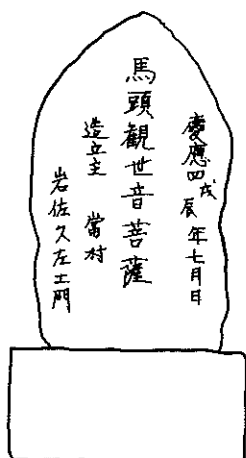 慶應四戊辰年七月日
馬頭観世音菩薩
造立主 當村
岩佐久左エ門